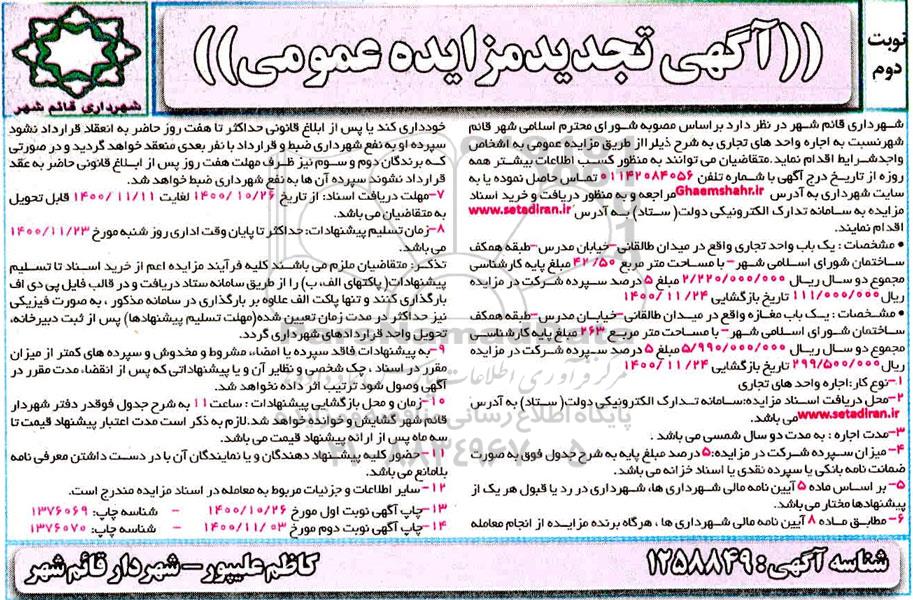 نوبت
دوم
((آگهی تجدید مزایده عمومی))
شهرداری قائم شهر
شهرداری قائم شهر در نظر دارد بر اساس مصوبه شورای محترم اسلامی شهر قائم
شهر نسبت به اجاره واحد های تجاری به شرح ذیل از طریق مزایده عمومی به اشخاص
واجد شرایط اقدام نماید. متقاضیان می توانند به منظور کسب اطلاعات بیشتر همه
روزه از تاریخ درج آگهی با شماره تلفن ۰۱۱۴۲۰۸۴۰۵۶ تماس حاصل نموده یا به
سایت شهرداری به آدرس Ghaemshahr.ir مراجعه و به منظور دریافت و خرید اسناد
مزایده به سامانه تدارک الکترونیکی دولت (ستاد) به آدرس www.setadiran.ir
اقدام نمایند.
• مشخصات : یک باب واحد تجاری واقع در میدان طالقانی-خیابان مدرس-طبقه همکف
ساختمان شورای اسلامی شهر- با مساحت متر مربع ۴۲/۵۰ مبلغ پایه کارشناسی
مجموع دو سال ریال ۲/۲۲۰/۰۰۰/۰۰۰ مبلغ ۵ درصد سپرده شرکت در مزایده
ریال ۱۱۱/۰۰۰/۰۰۰ تاریخ بازگشایی ۱۴۰۰/۱۱/۲۴
• مشخصات : یک باب مغازه واقع در میدان طالقانی-خیابان مدرس-طبقه همکف
ساختمان شورای اسلامی شهر- با مساحت متر مربع ۲۶۳ مبلغ پایه کارشناسی
مجموع دو سال ریال ۵/۹۹۰/۰۰۰/۰۰۰ مبلغ ۵ درصد سپرده شرکت در مزایده
ریال ۲۹۹/۵۰۰/۰۰۰ تاریخ بازگشایی ۱۴۰۰/۱۱/۲۴
۱-نوع کار: اجاره واحد های تجاری
۲-محل دریافت اسناد مزایده: سامانه تدارک الکترونیکی دولت (ستاد) به آدرس
www.setadiran.ir می باشد.
۳-مدت اجاره : به مدت دو سال شمسی می باشد .
۴-میزان سپرده شرکت در مزایده: ۵ درصد مبلغ پایه به شرح جدول فوق به صورت
ضمانت نامه بانکی یا سپرده نقدی یا اسناد خزانه می باشد.
۵- بر اساس ماده ۵ آیین نامه مالی شهرداری ها، شهرداری در رد یا قبول هر یک از
پیشنهادها مختار می باشد.
۶-مطابق ماده ۸ آیین نامه مالی شهرداری ها ، هرگاه برنده مزایده از انجام معامله
خودداری کند یا پس از ابلاغ قانونی حداکثر تا هفت روز حاضر به انعقاد قرارداد نشود
سپرده او به نفع شهرداری ضبط و قرارداد با نفر بعدی منعقد خواهد گردید و در صورتی
که برندگان دوم و سوم نیز ظرف مهلت هفت روز پس از ابلاغ قانونی حاضر به عقد
قرارداد نشوند سپرده آن ها به نفع شهرداری ضبط خواهد شد.
۷-مهلت دریافت اسناد: از تاریخ ۱۴۰۰/۱۰/۲۶ لغایت ۱۴۰۰/۱۱/۱۱ قابل تحویل
به متقاضیان می باشد.
۸-زمان تسلیم پیشنهادات: حداکثر تا پایان وقت اداری روز شنبه مورخ ۱۴۰۰/۱۱/۲۳
می باشد.
تذکر: متقاضیان ملزم می باشند کلیه فرآیند مزایده اعم از خرید اسناد تا تسلیم
پیشنهادات( پاکتهای الف، ب) را از طریق سامانه ستاد دریافت و در قالب فایل پی دی اف
بارگذاری کنند و تنها پاکت الف علاوه بر بارگذاری در سامانه مذکور ، به صورت فیزیکی
نیز حداکثر در مدت زمان تعیین شده(مهلت تسلیم پیشنهادها) پس از ثبت دبیرخانه،
تحویل واحد قراردادهای شهرداری گردد.
۹-به پیشنهادات فاقد سپرده یا امضاء، مشروط و مخدوش و سپرده های کمتر از میزان
مقرر در اسناد ، چک شخصی و نظایر آن و یا پیشنهاداتی که پس از انقضاء مدت مقرر در
آگهی وصول شود ترتیب اثر داده نخواهد شد.
۱۰-زمان و محل بازگشایی پیشنهادات : ساعت ۱۱ به شرح جدول فوق در دفتر شهردار
قائم شهر گشایش و خوانده خواهد شد. لازم به ذکر است مدت اعتبار پیشنهاد قیمت تا
سه ماه پس از ارائه پیشنهاد قیمت می باشد.
۱۱-حضور کلیه پیشنهاد دهندگان و یا نمایندگان آن با در دست داشتن معرفی نامه
بلامانع می باشد.
۱۲- سایر اطلاعات و جزئیات مربوط به معامله در اسناد مزایده مندرج است.
۱۳-چاپ آگهی نوبت اول مورخ ۱۴۰۰/۱۰/۲۶ - شناسه چاپ: ۱۳۷۶۰۶۹
۱۴-چاپ آگهی نوبت دوم مورخ ۱۴۰۰/۱۱/۰۳ - شناسه چاپ: ۱۳۷۶۰۷۰
شناسه آگهی: ۱۲۵۸۸۴۹
کاظم علیپور - شهردار قائم شهر